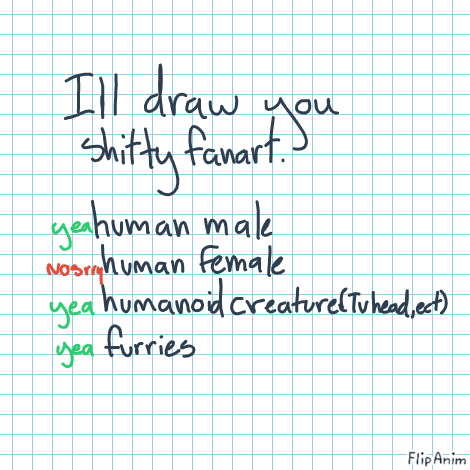 Ill draw you
shitty fanart.
yea human male
No srry human female
yea humanoid creature(Tv head, ect)
yea furries
FlipAnim